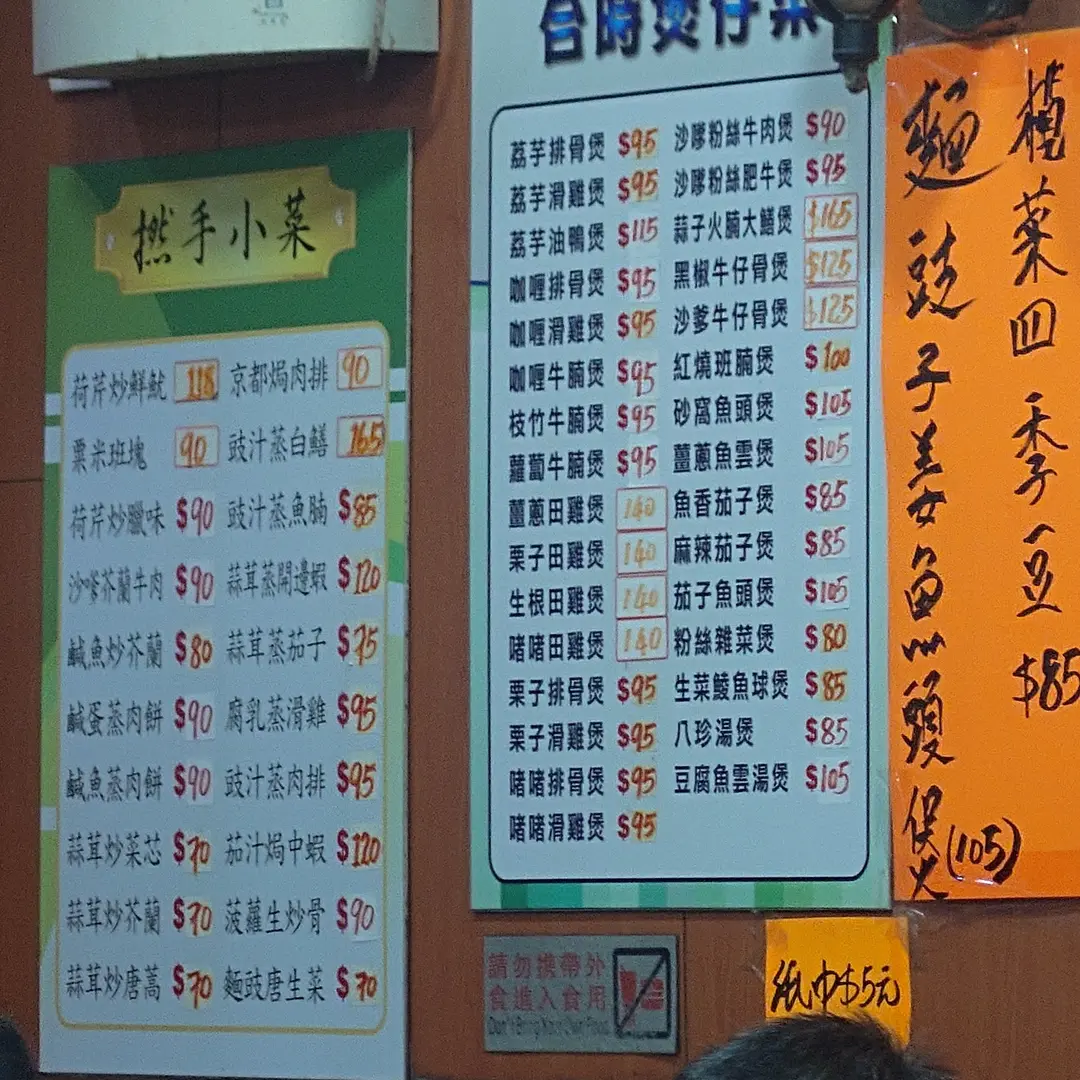 撚手小菜
荷芹炒鮮魷 118 京都焗肉排 90
粟米班塊 90 豉汁蒸白鱔 165
荷芹炒臘味 $90 豉汁蒸魚腩 $85
沙嗲芥蘭牛肉 $90 蒜茸蒸開邊蝦 $120
鹹魚炒芥蘭 $80 蒜茸蒸茄子 $75
鹹蛋蒸肉餅 $90 腐乳蒸滑雞 $95
鹹魚蒸肉餅 $90 豉汁蒸肉排 $95
蒜茸炒菜芯 $70 茄汁焗中蝦 $120
蒜茸炒芥蘭 $70 菠蘿生炒骨 $90
蒜茸炒唐蒿 $70 麵豉唐生菜 $70
合時煲仔菜
荔芋排骨煲 $95 沙嗲粉絲牛肉煲 $90
荔芋滑雞煲 $95 沙嗲粉絲肥牛煲 $95
荔芋油鴨煲 $115 蒜子火腩大鱔煲 $165
咖喱排骨煲 $95 黑椒牛仔骨煲 $125
咖喱滑雞煲 $95 沙爹牛仔骨煲 $125
咖喱牛腩煲 $95 紅燒班腩煲 $100
枝竹牛腩煲 $95 砂窩魚頭煲 $105
蘿蔔牛腩煲 $95 薑蔥魚雲煲 $105
薑蔥田雞煲 140 魚香茄子煲 $85
栗子田雞煲 140 麻辣茄子煲 $85
生根田雞煲 140 茄子魚頭煲 $105
啫啫田雞煲 140 粉絲雜菜煲 $80
栗子排骨煲 $95 生菜鯪魚球煲 $85
栗子滑雞煲 $95 八珍湯煲 $85
啫啫排骨煲 $95 豆腐魚雲湯煲 $105
啫啫滑雞煲 $95
欖菜四季豆 $85
麵豉子羌魚頭煲 (105)
請勿攜帶外
食進入食用
Don't Bring Your Own Food
紙巾$5元